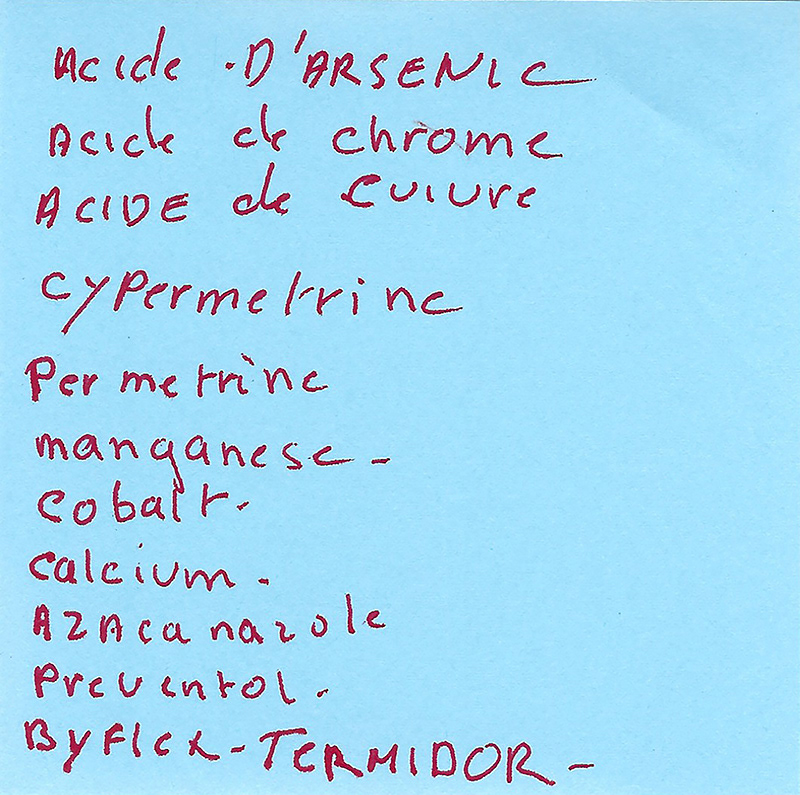 Acide D'ARSENIC
Acide de chrome
ACIDE de Cuivre
cypermetrine
Permetrine
manganese -
Cobalt -
Calcium -
AZACanazole
Preventol -
ByFlex - TERMIDOR -